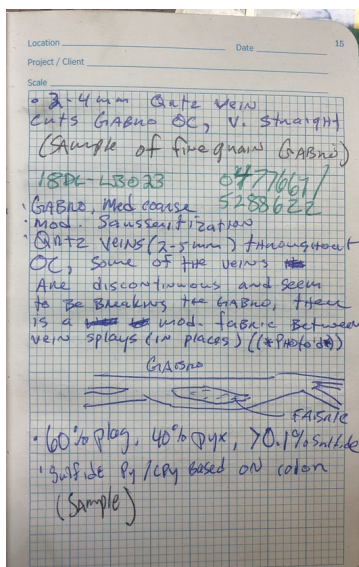 Location Date 15
Project / Client
Scale
• 2-4mm Qntz Vein
cuts GABBRO OC, V. Straight
(Sample of fine grain GABBRO)
18DL-LB023 0477667/
5288622
• GABBRO, Med coarse
• Mod. Saussuritization
• Qntz Veins (2-5mm) throughout
OC, Some of the veins
Are discontinuous and seem
to Be Breaking the GABBRO, there
is a mod. fabric Between
vein splays (in places) ((*Photo'd*))
GABBRO
FABRIC
• 60% plag, 40% pyx, >0.1% Sulfide
• Sulfide Py/CPy Based on color
(Sample)